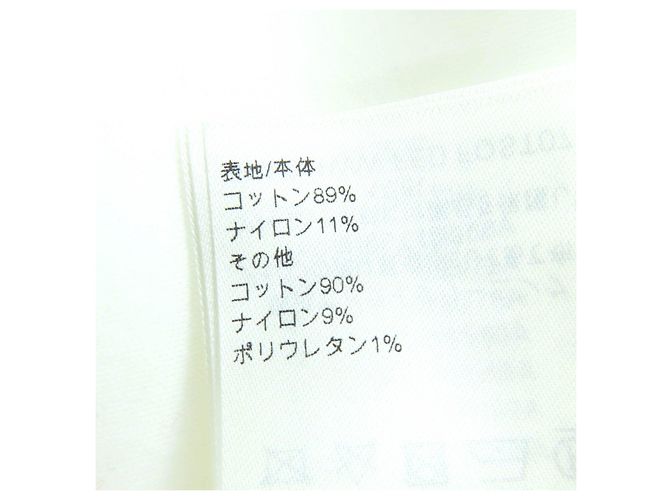 表地/本体
コットン89%
ナイロン11%
その他
コットン90%
ナイロン9%
ポリウレタン1%